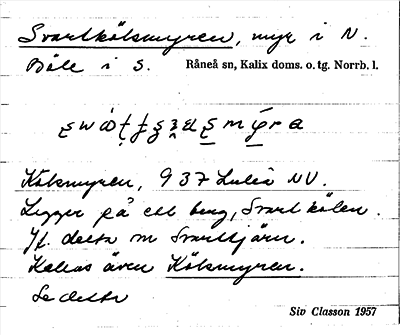 Svartkölsmyren, myr i N.
Böle i S. Råneå sn, Kalix doms. o. tg. Norrb. l.
Kölsmyren, 937 Luleå NV.
Ligger på ett berg, Svartkölen.
Jf. detta m Svarttjärn.
Kallas även Kölsmyren.
Se detta
Siv Classon 1957